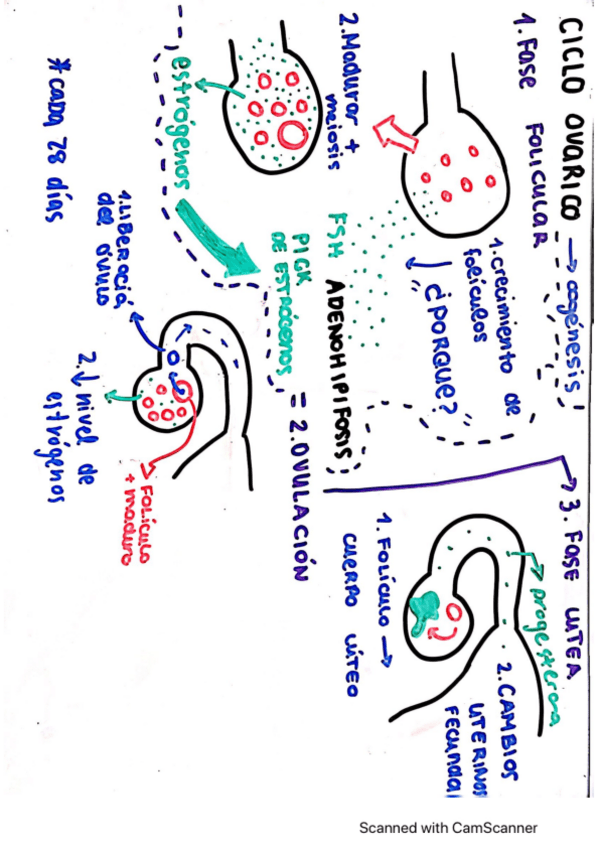 CICLO OVARICO → oogénesis
1. Fase FOLICULAR
1. crecimiento de
folículos
↓ "¿PORQUE?"
2. Madurar +
meiosis
FSH ADENOHIPIFOSIS
estrógenos
PICK
DE ESTRÓGENOS
= 2. OVULACIÓN
1. LIBERACIÓ,
del óvulo
2. ↓ nivel de
estrógenos
FOLICULO
+ maduro
* cada 28 días
3. FASE LUTEA
progesterona
1. FOLÍCULO →
CUERPO LÚTEO
2. CAMBIOS
UTERINOS
FECUNDA
Scanned with CamScanner